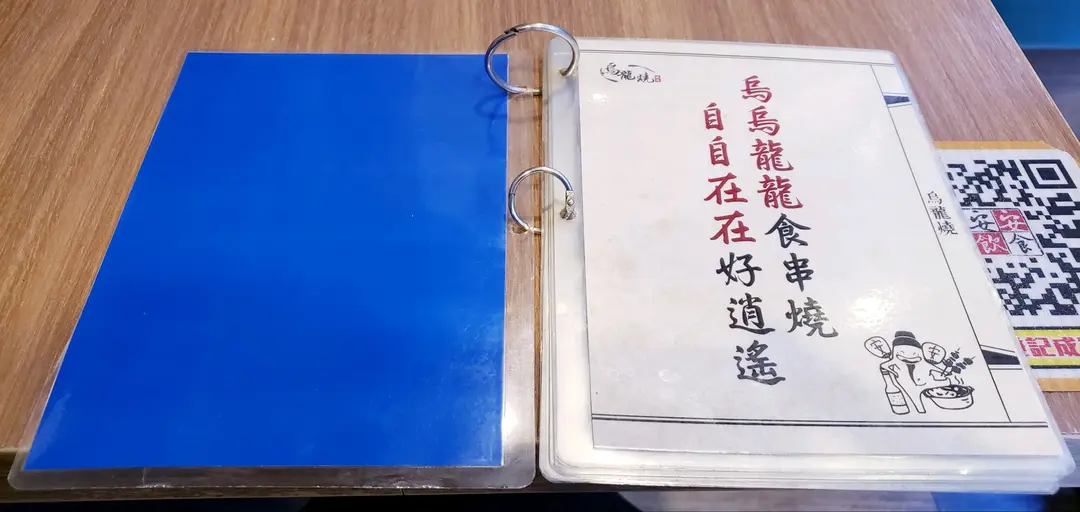 烏龍燒
烏烏龍龍食串燒
自自在在好逍遙
烏龍燒
安安
飲食
記成